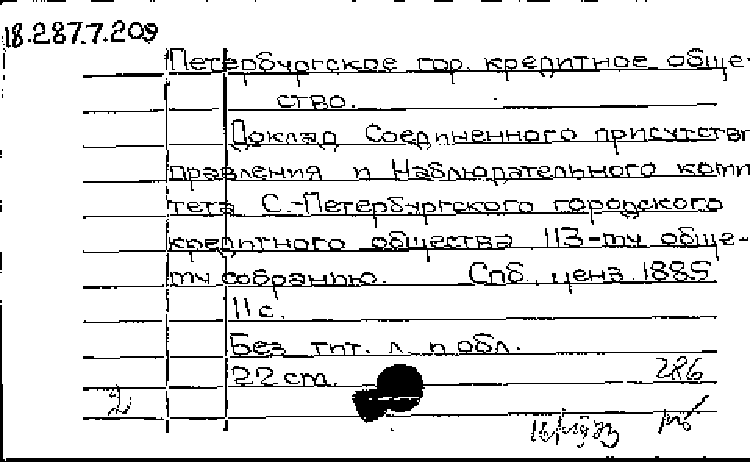 18.287.7.209
Петербургское гор. кредитное обще-
ство.
Доклад Соединенного присутств
правления и Наблюдательного коми
тета С.-Петербургского городского
кредитного общества 113-му обще-
му собранию. Спб, цена 1885
11 с.
Без тит. л. и обл.
22 cm. 286
2